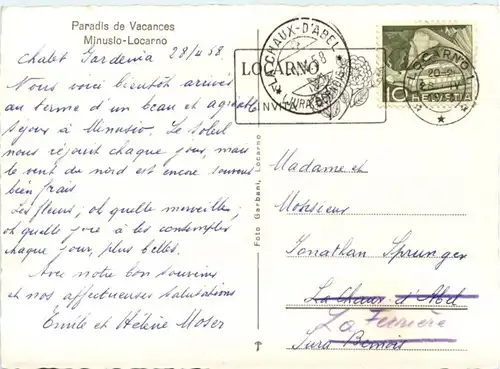 Paradis de Vacances
Minusio-Locarno
Chalet Gardenia 28/4 58
Nous voici bientôt arrivés
au terme d'un beau et agréable
séjour à Minusio. Le soleil
nous réjouit chaque jour, mais
le vent du nord est encore souvent
bien frais
Les fleurs; oh quelle merveille;
oh quelle joie à les contempler
chaque jour, plus belles.
Avec notre bon souvenir
et nos affectueuses salutations
Emile et Hélène Moser
Foto Garbani, Locarno
LA CHAUX-D'ABEL
(JURA BERNOIS)
LOCARNO
INVIT
LOCARNO 1
20-2
10
HELVETIA
Madame et
Monsieur
Jonathan Sprunger
La Chaux d'Abel
La Ferrière
Jura Bernois